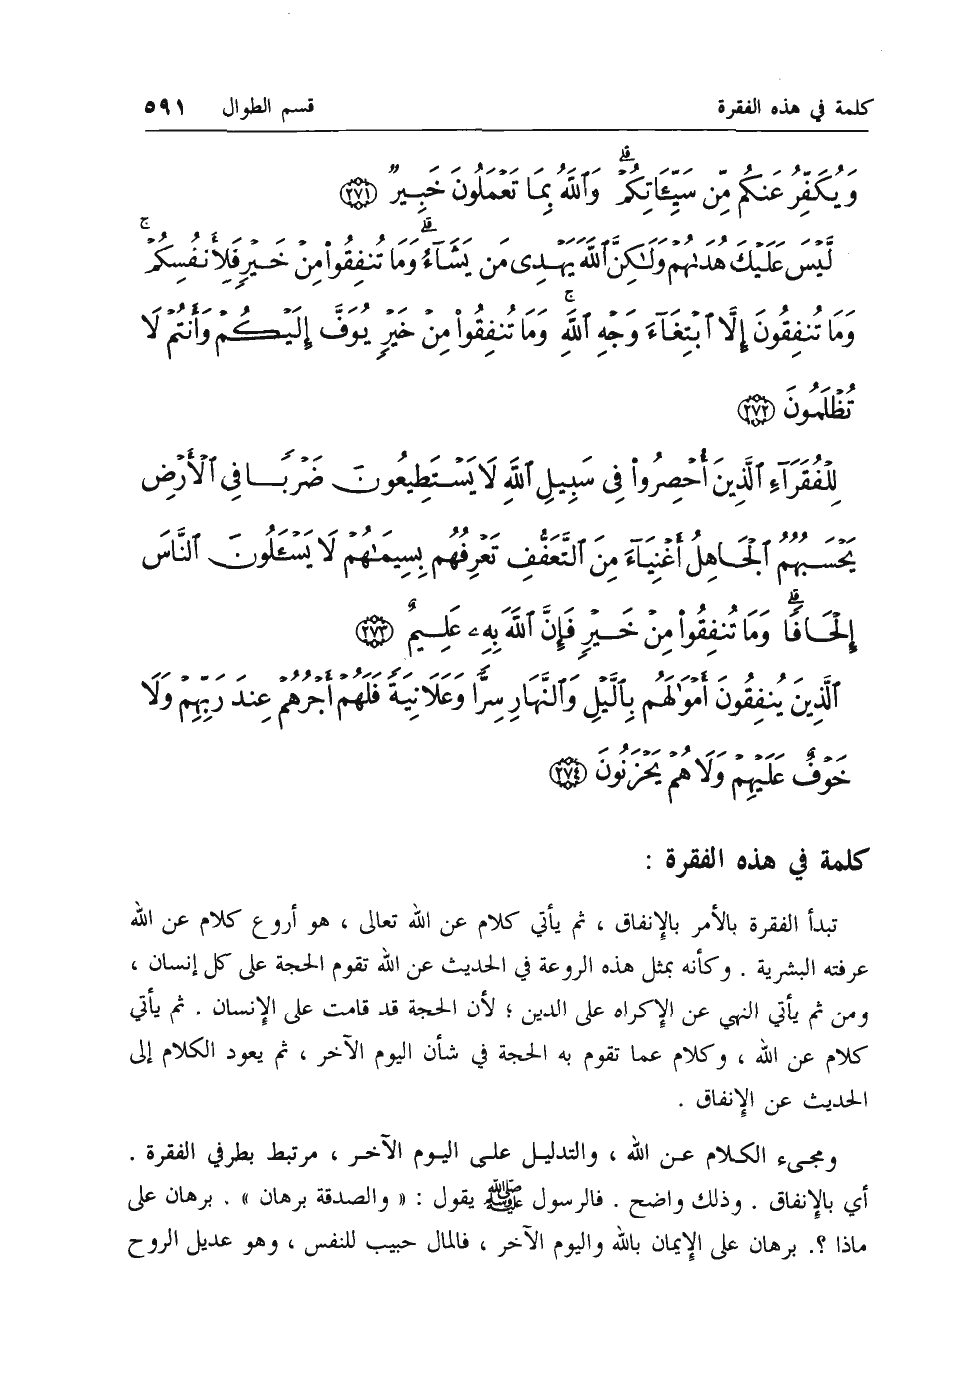 كلمة في هذه الفقرة قسم الطوال ٥٩١
وَيُكَفِّرُ عَنكُم مِّن سَيِّـَٔاتِكُمْ ۗ وَٱللَّهُ بِمَا تَعْمَلُونَ خَبِيرٌ ﴿٢٧١﴾
لَّيْسَ عَلَيْكَ هُدَىٰهُمْ وَلَٰكِنَّ ٱللَّهَ يَهْدِى مَن يَشَآءُ ۗ وَمَا تُنفِقُوا۟ مِنْ خَيْرٍ فَلِأَنفُسِكُمْ ۚ
وَمَا تُنفِقُونَ إِلَّا ٱبْتِغَآءَ وَجْهِ ٱللَّهِ ۚ وَمَا تُنفِقُوا۟ مِنْ خَيْرٍ يُوَفَّ إِلَيْكُمْ وَأَنتُمْ لَا
تُظْلَمُونَ ﴿٢٧٢﴾
لِلْفُقَرَآءِ ٱلَّذِينَ أُحْصِرُوا۟ فِى سَبِيلِ ٱللَّهِ لَا يَسْتَطِيعُونَ ضَرْبًا فِى ٱلْأَرْضِ
يَحْسَبُهُمُ ٱلْجَاهِلُ أَغْنِيَآءَ مِنَ ٱلتَّعَفُّفِ تَعْرِفُهُم بِسِيمَٰهُمْ لَا يَسْـَٔلُونَ ٱلنَّاسَ
إِلْحَافًا ۗ وَمَا تُنفِقُوا۟ مِنْ خَيْرٍ فَإِنَّ ٱللَّهَ بِهِۦ عَلِيمٌ ﴿٢٧٣﴾
ٱلَّذِينَ يُنفِقُونَ أَمْوَٰلَهُم بِٱلَّيْلِ وَٱلنَّهَارِ سِرًّا وَعَلَانِيَةً فَلَهُمْ أَجْرُهُمْ عِندَ رَبِّهِمْ وَلَا
خَوْفٌ عَلَيْهِمْ وَلَا هُمْ يَحْزَنُونَ ﴿٢٧٤﴾
كلمة في هذه الفقرة :
تبدأ الفقرة بالأمر بالإنفاق ، ثم يأتي كلام عن الله تعالى ، هو أروع كلام عن الله
عرفته البشرية . وكأنه بمثل هذه الروعة في الحديث عن الله تقوم الحجة على كل إنسان ،
ومن ثم يأتي النهي عن الإكراه على الدين ؛ لأن الحجة قد قامت على الإنسان . ثم يأتي
كلام عن الله ، وكلام عما تقوم به الحجة في شأن اليوم الآخر ، ثم يعود الكلام إلى
الحديث عن الإنفاق .
ومجيء الكلام عن الله ، والتدليل على اليوم الآخر ، مرتبط بطرفي الفقرة .
أي بالإنفاق . وذلك واضح . فالرسول ﷺ يقول : « والصدقة برهان » . برهان على
ماذا ؟. برهان على الإيمان بالله واليوم الآخر ، فالمال حبيب للنفس ، وهو عديل الروح